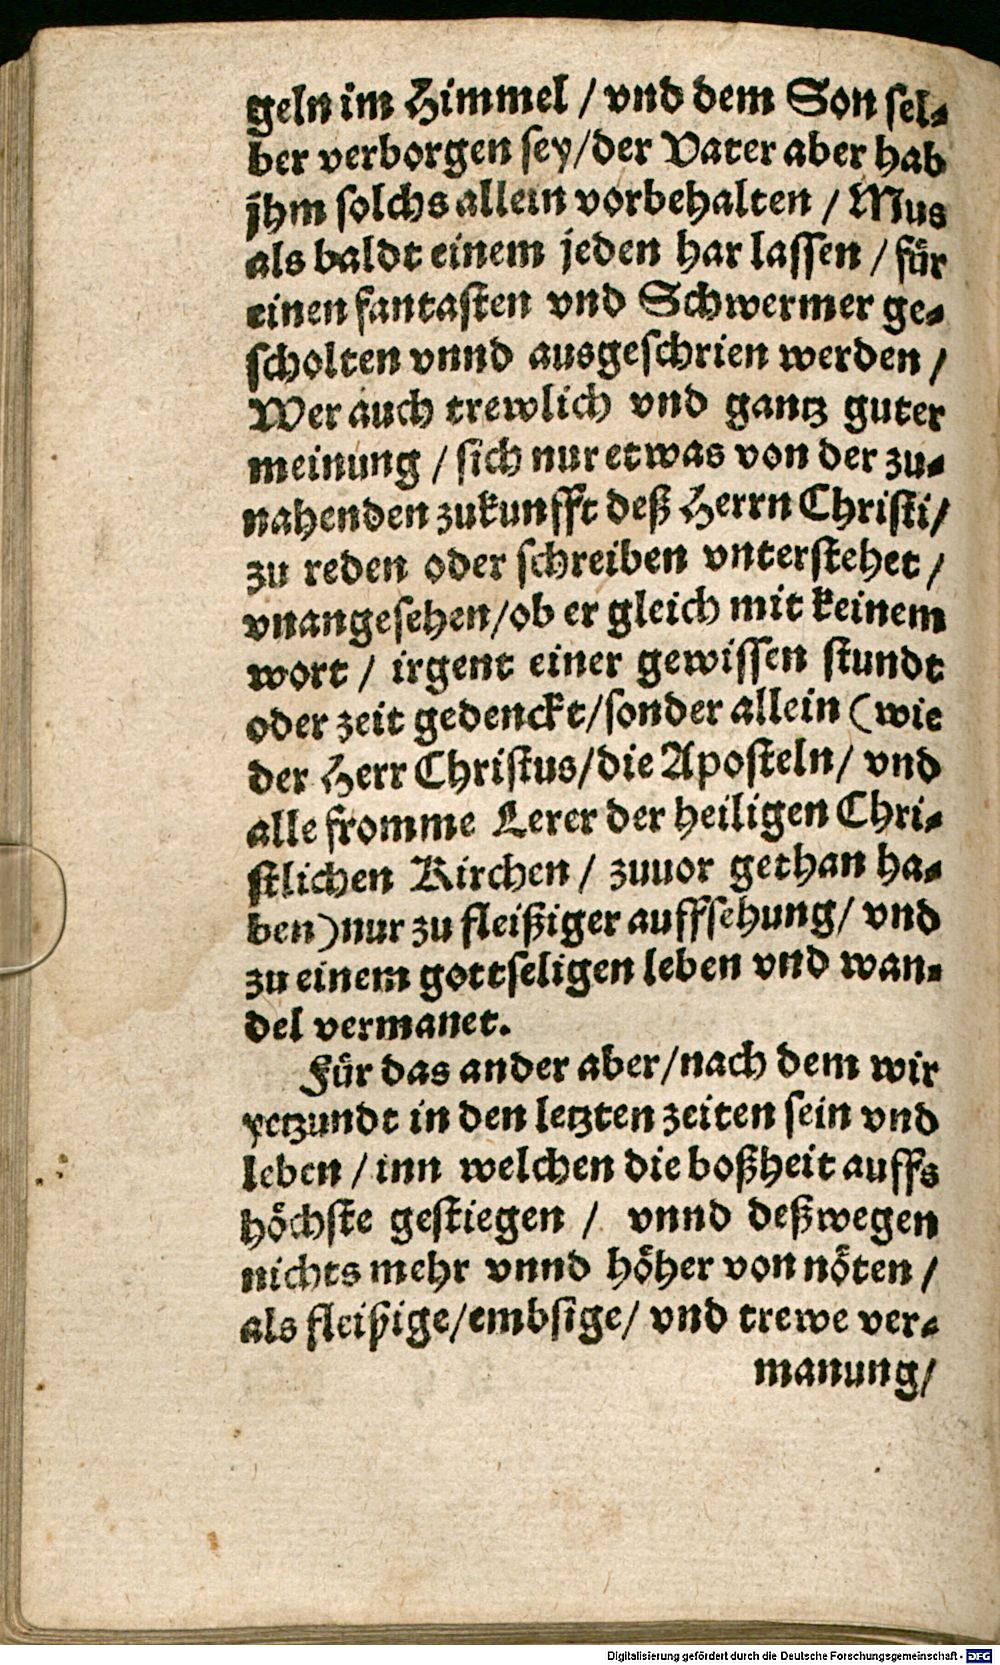 geln im Himmel / vnd dem Son sel⸗
ber verborgen sey/der Vater aber hab
jhm solchs allein vorbehalten / Mus
als baldt einem jeden har lassen / fuͤr
einen fantasten vnd Schwermer ge⸗
scholten vnnd ausgeschrien werden /
Wer auch trewlich vnd gantz guter
meinung / sich nur etwas von der zu⸗
nahenden zukunfft deß Herrn Christi/
zu reden oder schreiben vnterstehet /
vnangesehen/ob er gleich mit keinem
wort / irgent einer gewissen stundt
oder zeit gedenckt/sonder allein (wie
der Herr Christus/die Aposteln/ vnd
alle fromme Lerer der heiligen Chri⸗
stlichen Kirchen / zuuor gethan ha⸗
ben)nur zu fleißiger auffsehung/ vnd
zu einem gottseligen leben vnd wan⸗
del vermanet.
Fuͤr das ander aber/nach dem wir
yetzundt in den letzten zeiten sein vnd
leben / inn welchen die boßheit auffs
hoͤchste gestiegen / vnnd deßwegen
nichts mehr vnnd hoͤher von noͤten /
als fleißige/embsige/ vnd trewe ver⸗
manung/
Digitalisierung gefördert durch die Deutsche Forschungsgemeinschaft - DFG